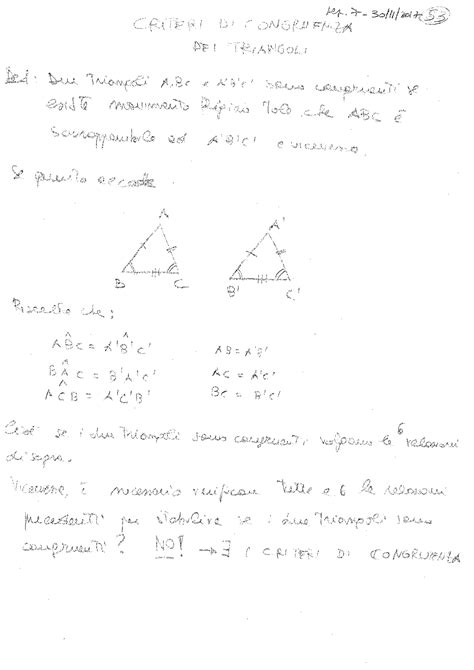 lez. 7 - 30/11/2017 53
CRITERI DI CONGRUENZA
DEI TRIANGOLI
Def: Due triangoli ABC e A'B'C' sono congruenti se
esiste movimento rigido tale che ABC è
sovrapponibile ad A'B'C' e viceversa.
Se questo accade
A
B
C
A'
B'
C'
Risulta che:
AB̂C = A'B̂'C' AB = A'B'
BÂC = B'A'C' AC = A'C'
AĈB = A'C'B' BC = B'C'
Cioè se i due triangoli sono congruenti valgono le 6 relazioni
di sopra.
Viceversa, è necessario verificare tutte e 6 le relazioni
precedenti per stabilire se i due triangoli sono
congruenti? NO! → ∃ I CRITERI DI CONGRUENZA